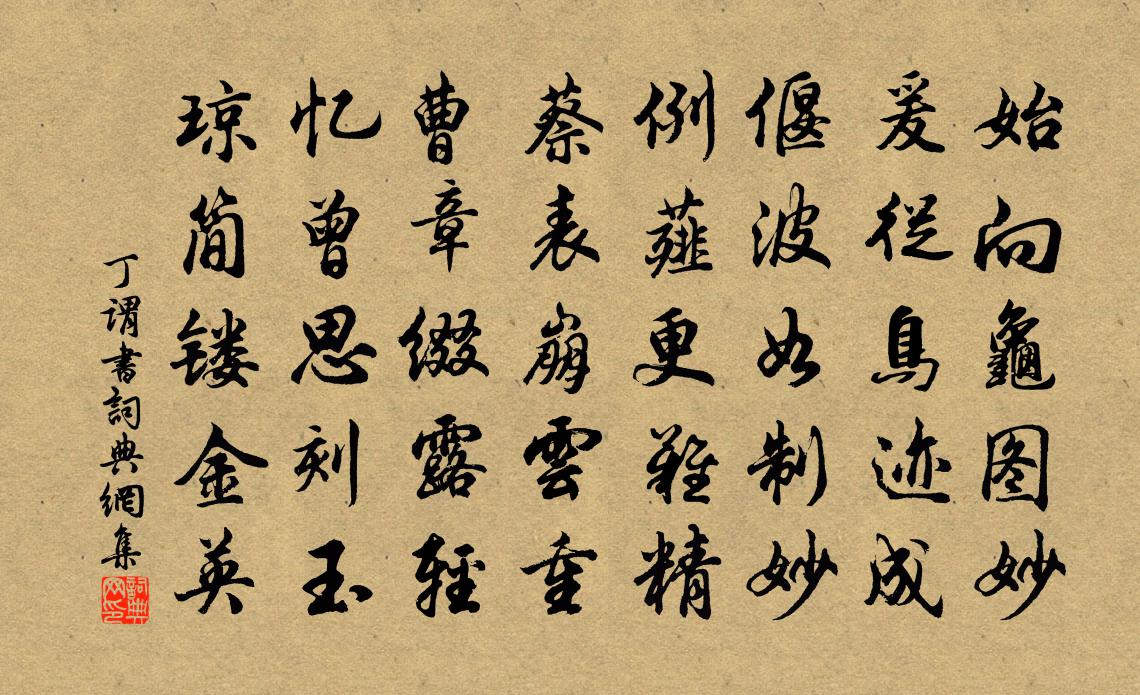 始向龜图妙
爰従鳥迹成
偃波如制妙
例薤更難精
蔡表崩雲重
曹章缀露輕
忆曾思刻玉
琼简镂金英
丁谓書詞典網集
詞典网印